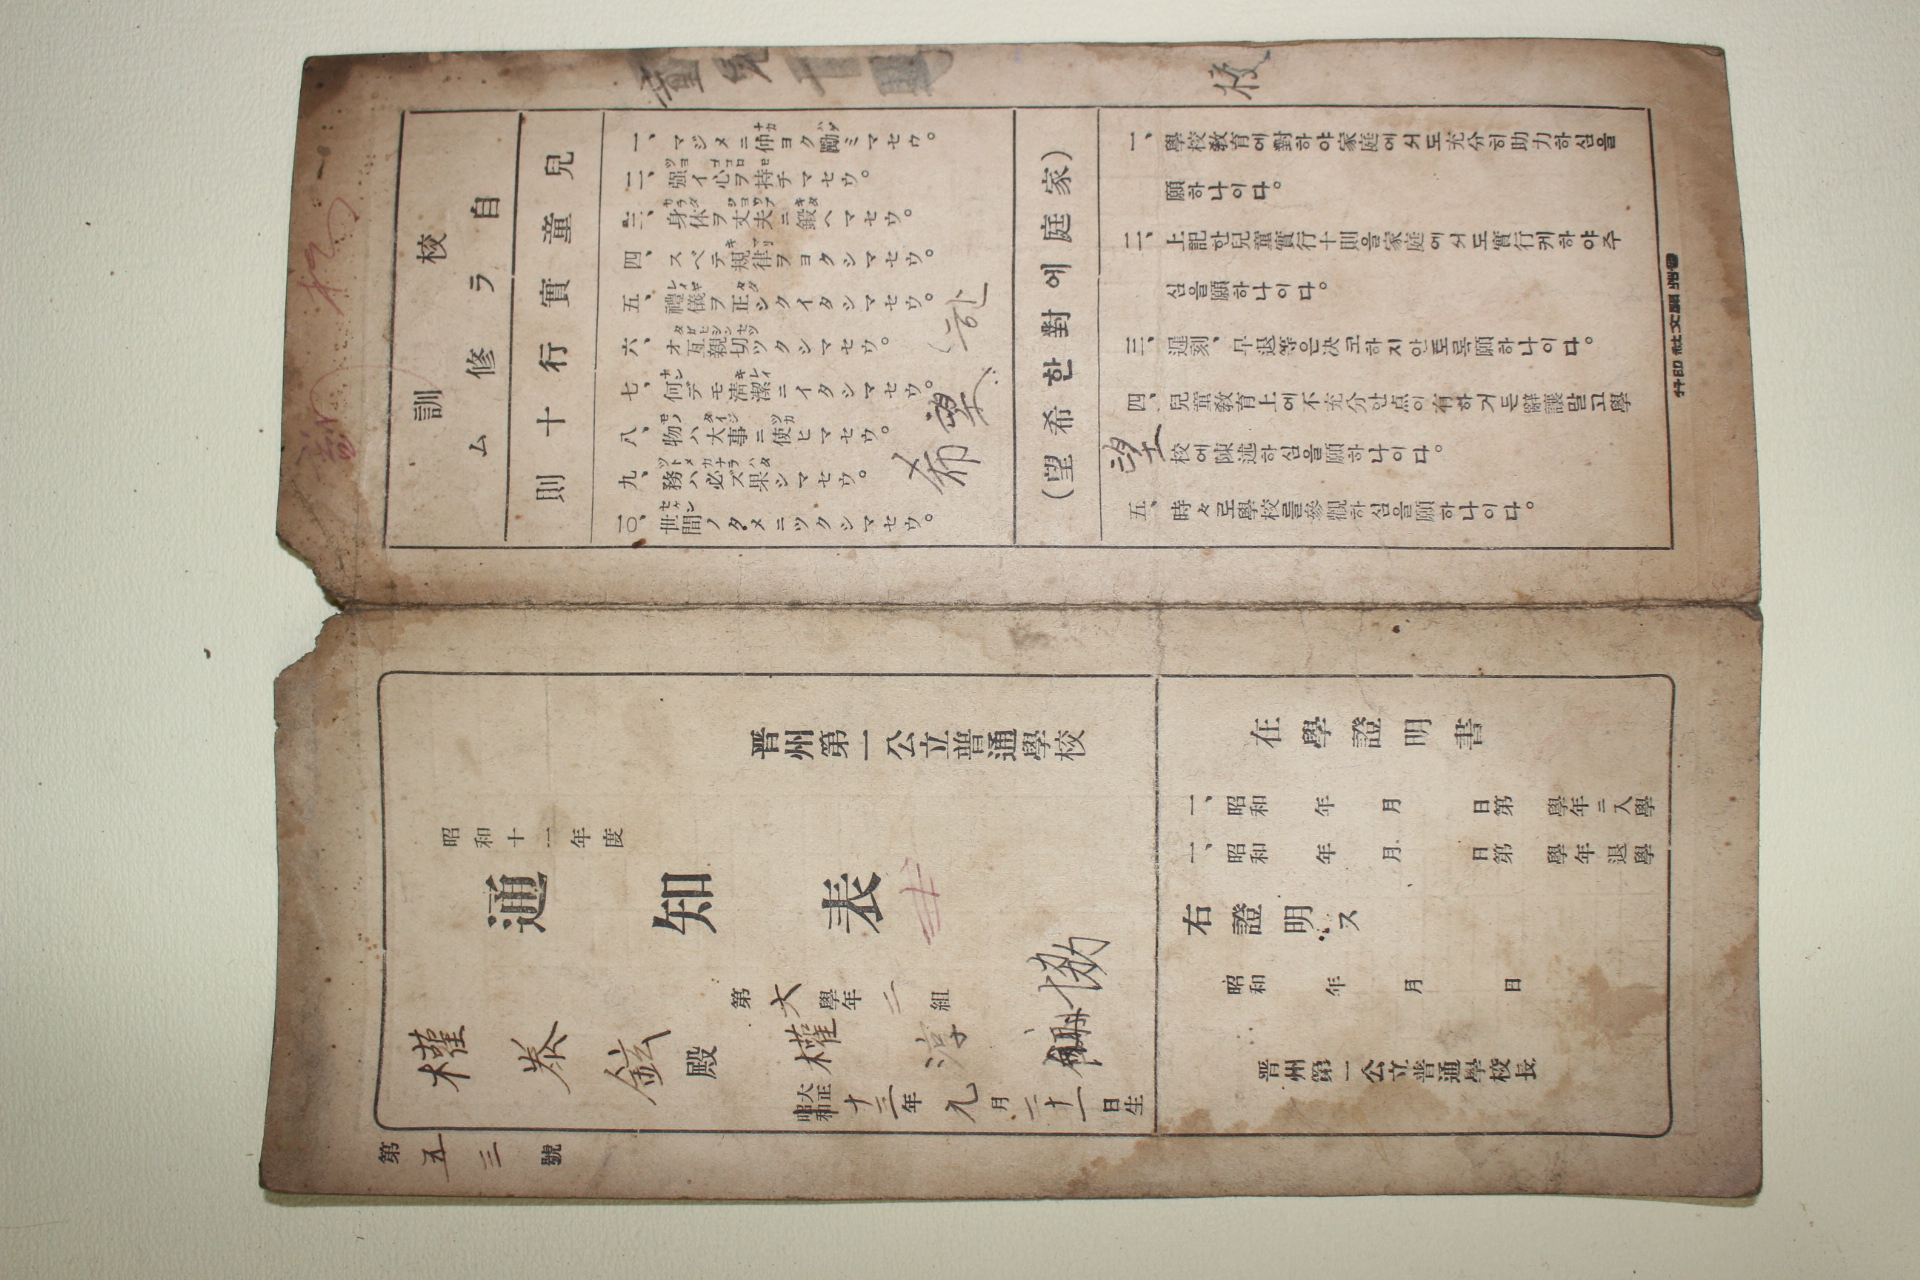 校訓
自ラ修ム
兒童實行十則
一、マジメニ仲ヨク勵ミマセウ。
二、强イ心ヲ持チマセウ。
三、身体ヲ丈夫ニ鍛ヘマセウ。
四、スベテ規律ヲヨクシマセウ。
五、禮儀ヲ正シクイタシマセウ。
六、オ互親切ツクシマセウ。
七、何デモ淸潔ニイタシマセウ。
八、物ハ大事ニ使ヒマセウ。
九、務ハ必ズ果シマセウ。
一〇、世間ノタメニツクシマセウ。
希望 한
(家庭에對한希望)
一、學校敎育에對하야家庭에서도充分히助力하심을
願하나이다。
二、上記한兒童實行十則을家庭에서도實行케하야주
심을願하나이다。
三、遲刻、早退等은決코하지안토록願하나이다。
四、兒童敎育上에不充分안点이有하거든辭讓말고學
校에陳述하심을願하나이다。
望
五、時々로學校를參觀하심을願하나이다。
晋州開文社印行
校
晋州第一公立普通學校
昭和十一年度
通知表
第六學年二組
權泰鉉殿
權淳
協
大正
昭和
十三年九月二十一日生
第五三號
在學證明書
一、昭和 年 月 日第 學年ニ入學
一、昭和 年 月 日第 學年退學
右證明ス
昭和 年 月 日
晋州第一公立普通學校長